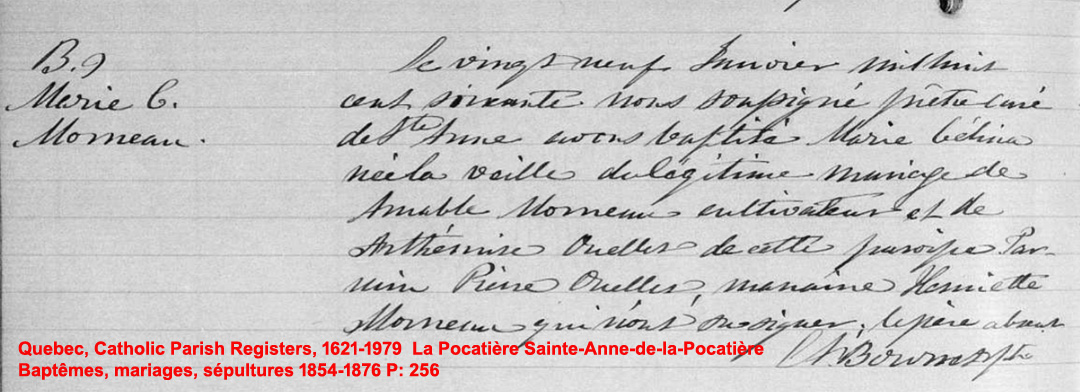 B. 9
Marie C.
Morneau.
Le vingt neuf Janvier mil huit
cent soixante nous soussigné prêtre curé
de Ste Anne avons baptisé Marie Célina
née la veille du légitime mariage de
Amable Morneau cultivateur et de
Arthémise Ouellet de cette paroisse Par-
rain Pierre Ouellet, marraine Henriette
Morneau qui n'ont su signer, le père absent
Quebec, Catholic Parish Registers, 1621-1979 La Pocatière Sainte-Anne-de-la-Pocatière
Baptêmes, mariages, sépultures 1854-1876 P: 256